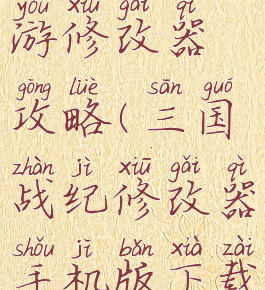 yóu xiū gǎi qì
游修改器
gōng lüè sān guó
攻略(三国
zhàn jì xiū gǎi qì
战纪修改器
shǒu jī bǎn xià zài
手机版下载